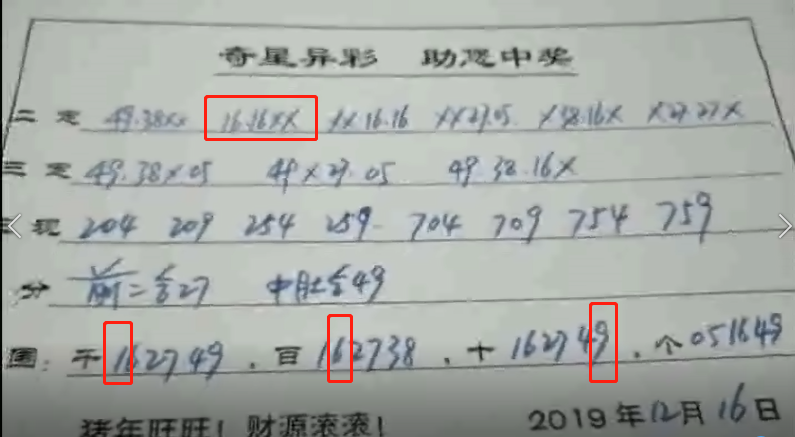 奇星异彩 助您中奖
二定 49.38XX 16.16XX XX16.16 XX27.05 X38.16X X27.27X
三定 49.38X05 49X27.05 49.38.16X
现 204 209 254 259 704 709 754 759
分 前二合27 中肚合49
围：千162749．百162738．十162749．个051649
猪年旺旺！财源滚滚！ 2019年12月16日